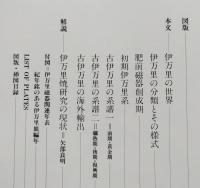 図版
本文
伊万里の世界
伊万里の分類とその様式
肥前磁器創成期
初期伊万里系
古伊万里の系譜一＝前期・黄金期
古伊万里の系譜二＝爛熟期・後期・復興期
古伊万里の海外輸出
解説―伊万里焼研究の現状＝矢部良明
付図＝伊万里磁器関連年表
紀年銘のある伊万里焼編年
LIST OF PLATES
図版・挿図目録